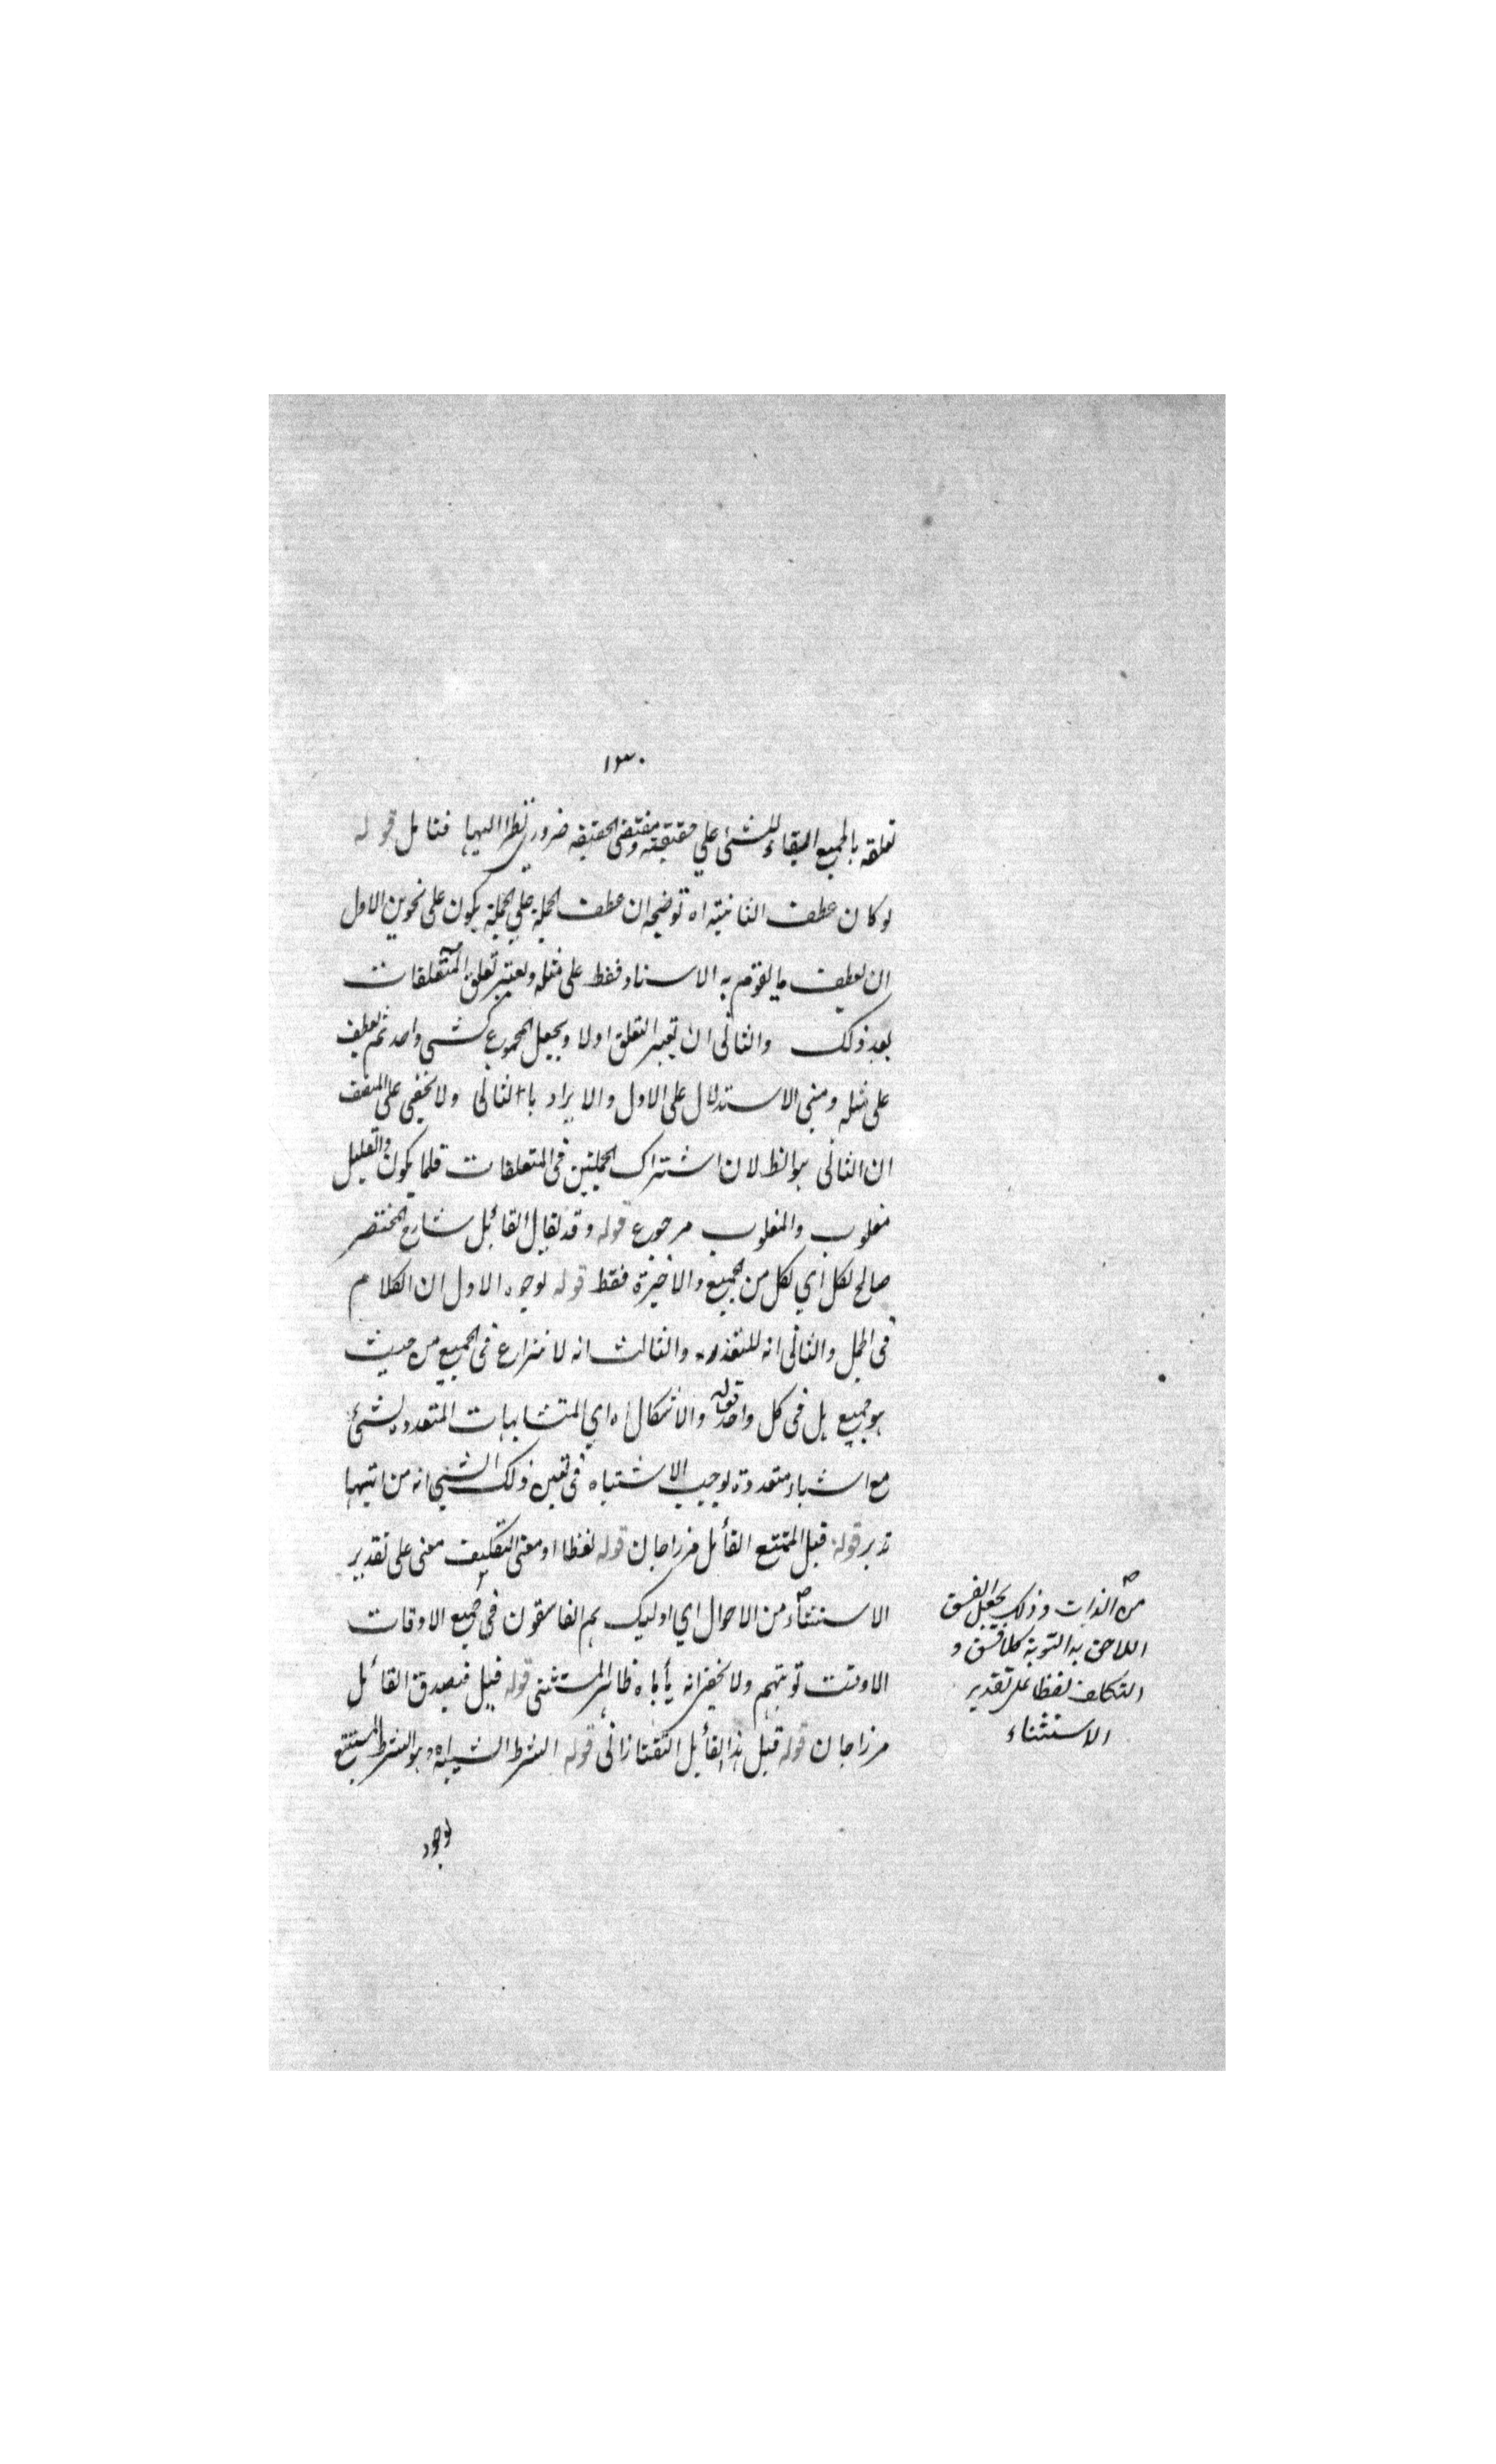 ١٣٠
تعلقه بالجميع البقاء للشئ علي حقيقته ومقتضى الحقيقه ضروري نظرا اليها فتامل قوله
لو كان عطف الثانية اه توضيحه ان عطف الجملة علي الجملة يكون على نحوين الاول
ان يعطف ما يقوم به الاسناد فقط على مثله ويعتبر تعلق المتعلقات
بعد ذلك والثانى ان يعتبر التعلق اولا ويجعل المجموع كشى واحد ثم يعطف
على مثله ومبنى الاستدلال على الاول والايراد بالثانى ولا يخفى على
ان الثانى هو الظ لان اشتراك الجملتين فى المتعلقات قلما يكون والقليل
مغلوب والمغلوب مرجوع قوله وقد يقال القائل شارح المختصر
صالح لكل اي لكل من الجميع والاخيرة فقط قوله لوجوه الاول ان الكلام
فى الجمل والثانى انه للتعذر والثالث انه لا نزاع فى الجميع من حيث
هو جميع بل فى كل واحد قوله والاشكال اه اي المتشابهات المتعدده لشئ
مع اشياء متعددة يوجب الاشتباه فى تعين ذلك الشى انه من ايتها
تدبر قوله قيل الممتنع القائل مرزاجان قوله لفظا او معنى التفكيك معنى على تقدير
الاستثناء من الاحوال اي اوليك هم الفاسقون فى جميع الاوقات
الا وقت توبتهم ولا يخفى انه يأباه ظاهر المستثنى قوله قيل فيصدق القائل
مرزاجان قوله قيل هذا القائل التفتازانى قوله الشرط الشبيه اه وهو الشرط المستتبع
لوجود
من الذات وذلك بجعل الفسق
اللاحق به التوبة كلا فسق و
التكلف لفظا على تقدير
الاستثناء